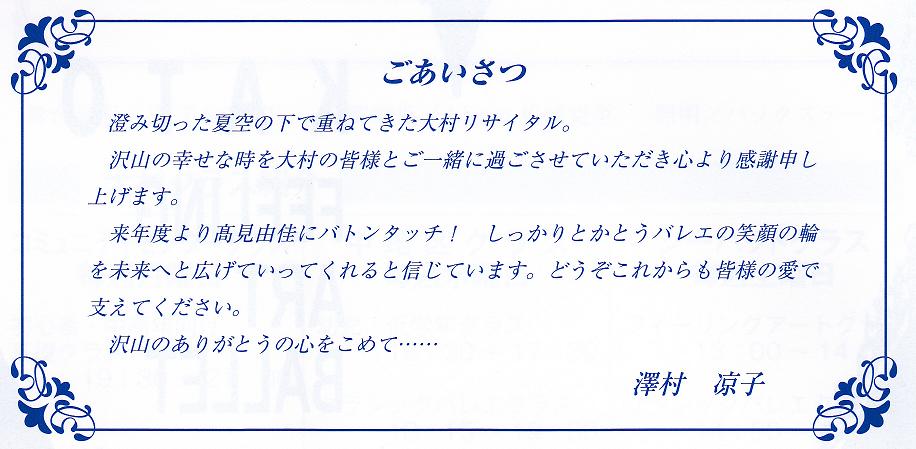 ごあいさつ
澄み切った夏空の下で重ねてきた大村リサイタル。
沢山の幸せな時を大村の皆様とご一緒に過ごさせていただき心より感謝申し
上げます。
来年度より髙見由佳にバトンタッチ！　しっかりとかとうバレエの笑顔の輪
を未来へと広げていってくれると信じています。どうぞこれからも皆様の愛で
支えてください。
沢山のありがとうの心をこめて……
澤村　凉子